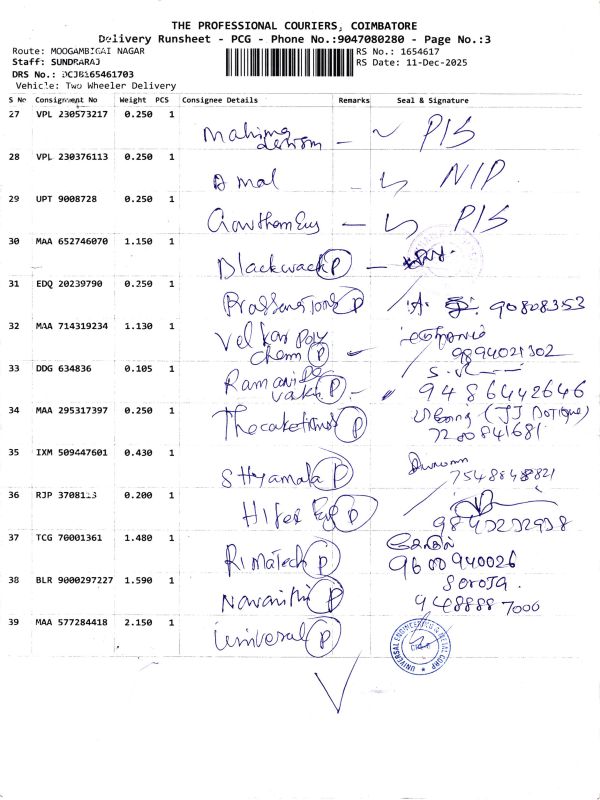 THE PROFESSIONAL COURIERS, COIMBATORE
Delivery Runsheet - PCG - Phone No.:9047080280 - Page No.:3
Route: MOOGAMBIGAI NAGAR RS No.: 1654617
Staff: SUNDRARAJ RS Date: 11-Dec-2025
DRS No.: DCJB165461703
Vehicle: Two Wheeler Delivery
S No Consignment No Weight PCS Consignee Details Remarks Seal & Signature
27 VPL 230573217 0.250 1 Mahima P/S
28 VPL 230376113 0.250 1 A mal N/P
29 UPT 9008728 0.250 1 Gowthem Eng P/S
30 MAA 652746070 1.150 1 Blackwack P
31 EDQ 20239790 0.250 1 P 90808353
32 MAA 714319234 1.130 1 Velkar Poly
Chem P 9894021302
33 DDG 634836 0.105 1 Ramani De
P 9486442646
34 MAA 295317397 0.250 1 P (JJ
7200841681
35 IXM 509447601 0.430 1 Shyamala P
7548848821
36 RJP 3708113 0.200 1 P
9843232938
37 TCG 70001361 1.480 1 Rimatech P
9600940026
38 BLR 9000297227 1.590 1 Navanithi P Soroja.
9488887000
39 MAA 577284418 2.150 1 Universal P
UNIVERSAL ENGINEERING & METAL CORP